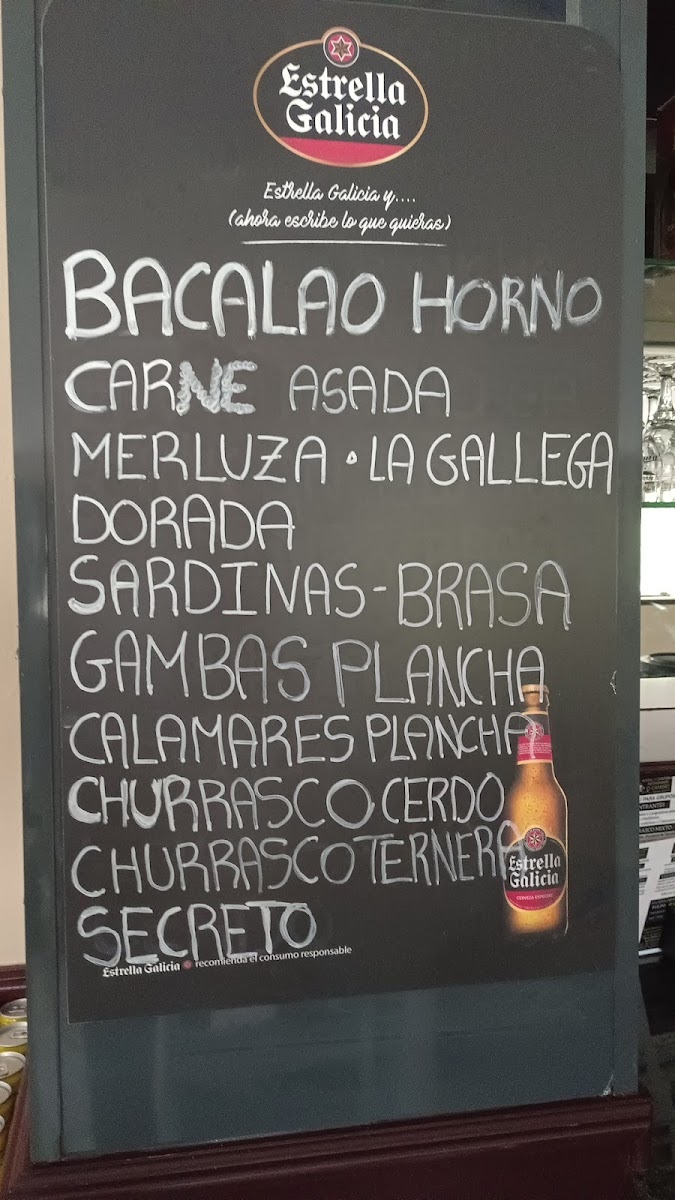 Estrella
Galicia
Estrella Galicia y....
(ahora escribe lo que quieras)
BACALAO HORNO
CARNE ASADA
MERLUZA • LA GALLEGA
DORADA
SARDINAS - BRASA
GAMBAS PLANCHA
CALAMARES PLANCHA
CHURRASCO CERDO
CHURRASCO TERNERA
SECRETO
Estrella
Galicia
CERVEZA ESPECIAL
Estrella Galicia recomienda el consumo responsable